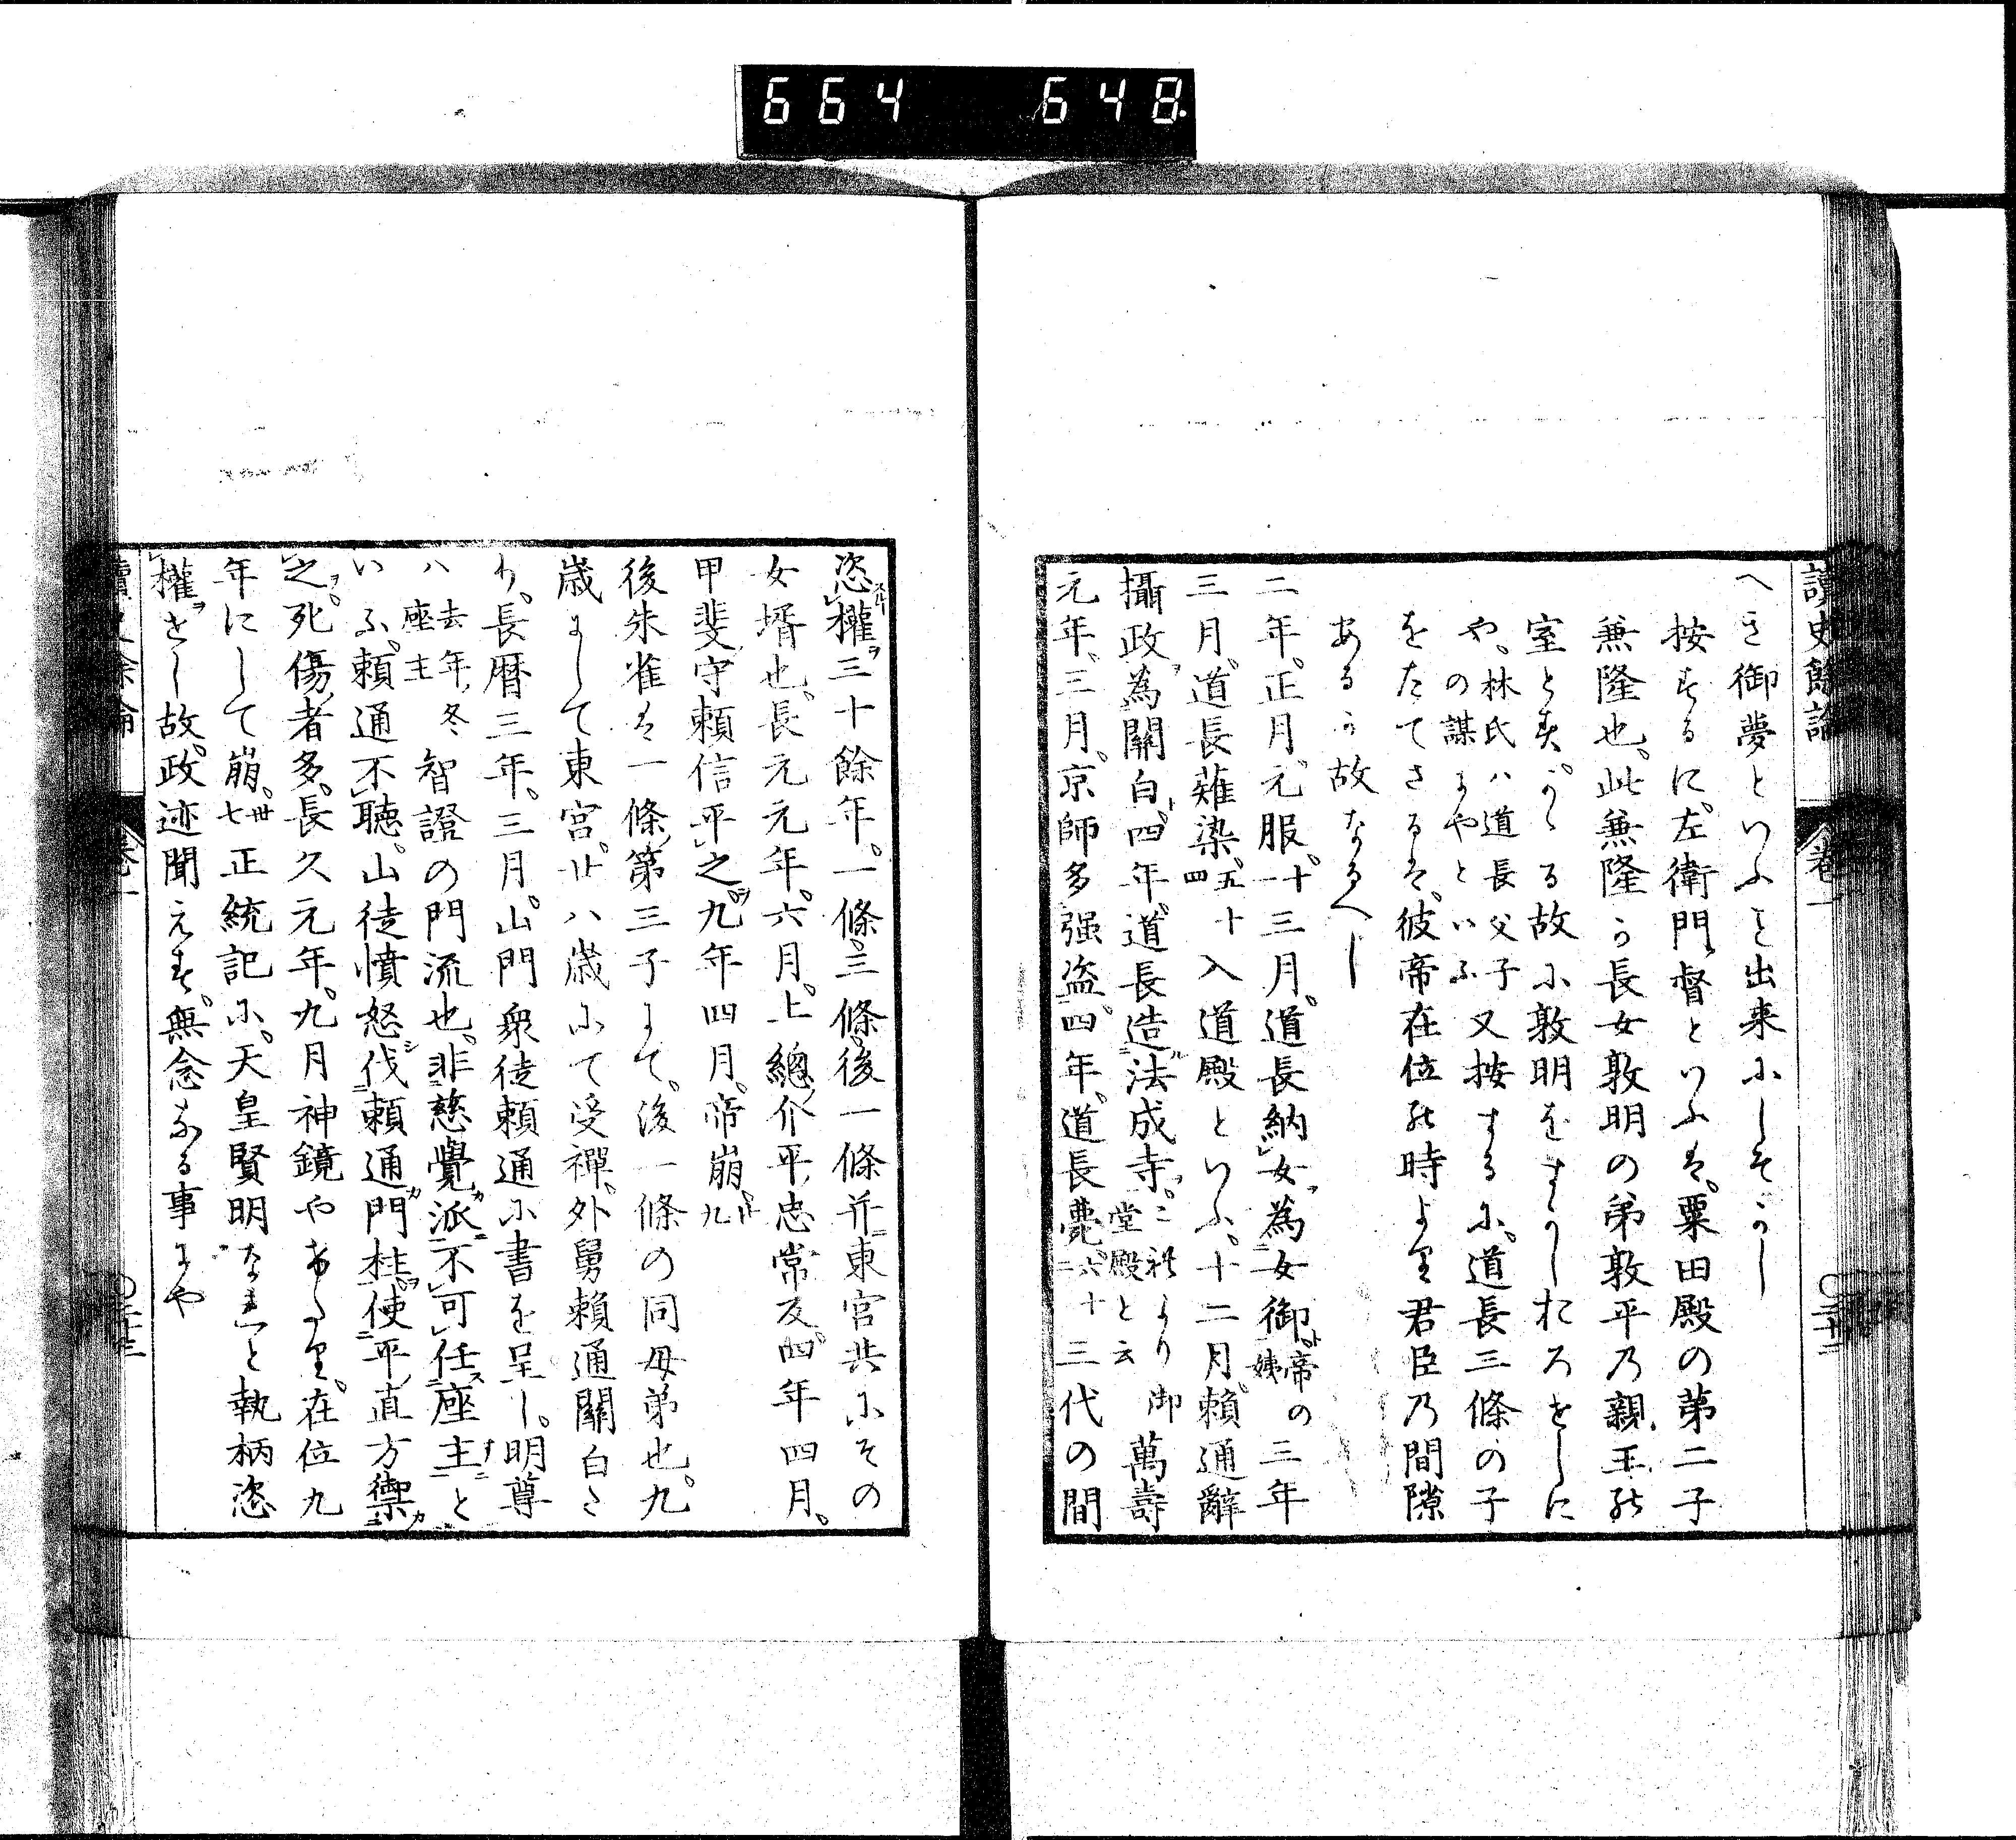 664 648
讀史餘論 卷一
へき御夢といふも出来にしそかし
按するに左衛門督といふは粟田殿の第二子
兼隆也此兼隆か長女敦明の弟敦平の親王の
室とすかゝる故に敦明をすかしおろせしに
や林氏ハ道長父子の謀にやといふ又按するに道長三條の子
をたてさるは彼帝在位の時より君臣の間隙
あるか故なるへし
二年正月元服十一三月道長納女為女御帝の姨三年
三月道長薙染五十四入道殿といふ十二月賴通辭
攝政為關白四年道長造法成寺これより御堂殿と云萬壽
元年三月京師多强盜四年道長薨六十二三代の間
恣權三十餘年一條三條後一條并東宮共にその
女壻也長元元年六月上總介平忠常反四年四月
甲斐守賴信平之九年四月帝崩廿九
後朱雀は一條第三子にて後一條の同母弟也九
歲にして東宮廿八歲にて受禪外舅賴通關白た
り長曆三年三月山門衆徒賴通に書を呈し明尊
ハ去年冬座主智證の門流也非慈覺派不可任座主と
いふ賴通不聽山徒憤怒伐賴通門柱使平直方禦
之死傷者多長久元年九月神鏡やけたり在位九
年にして崩卅七正統記に天皇賢明なれと執柄恣
權せし故政迹聞えす無念なる事にや
卷一